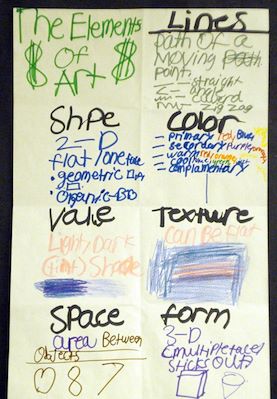 The Elements
$ Of $
Art
Lines
path of a
moving path
point.
straight
angle
zig zag
Shpe
2-D
flat/one face
• geometric
• organic
Color
primary Red, Blue
secondary Purple, orange
warm Red, orange
cool
complamentary
Value
Light/Dark
(tint) Shade
Texture
can Be flat
Space
area Between
Objects
form
3-D
(multiple faces)
Sticks Out